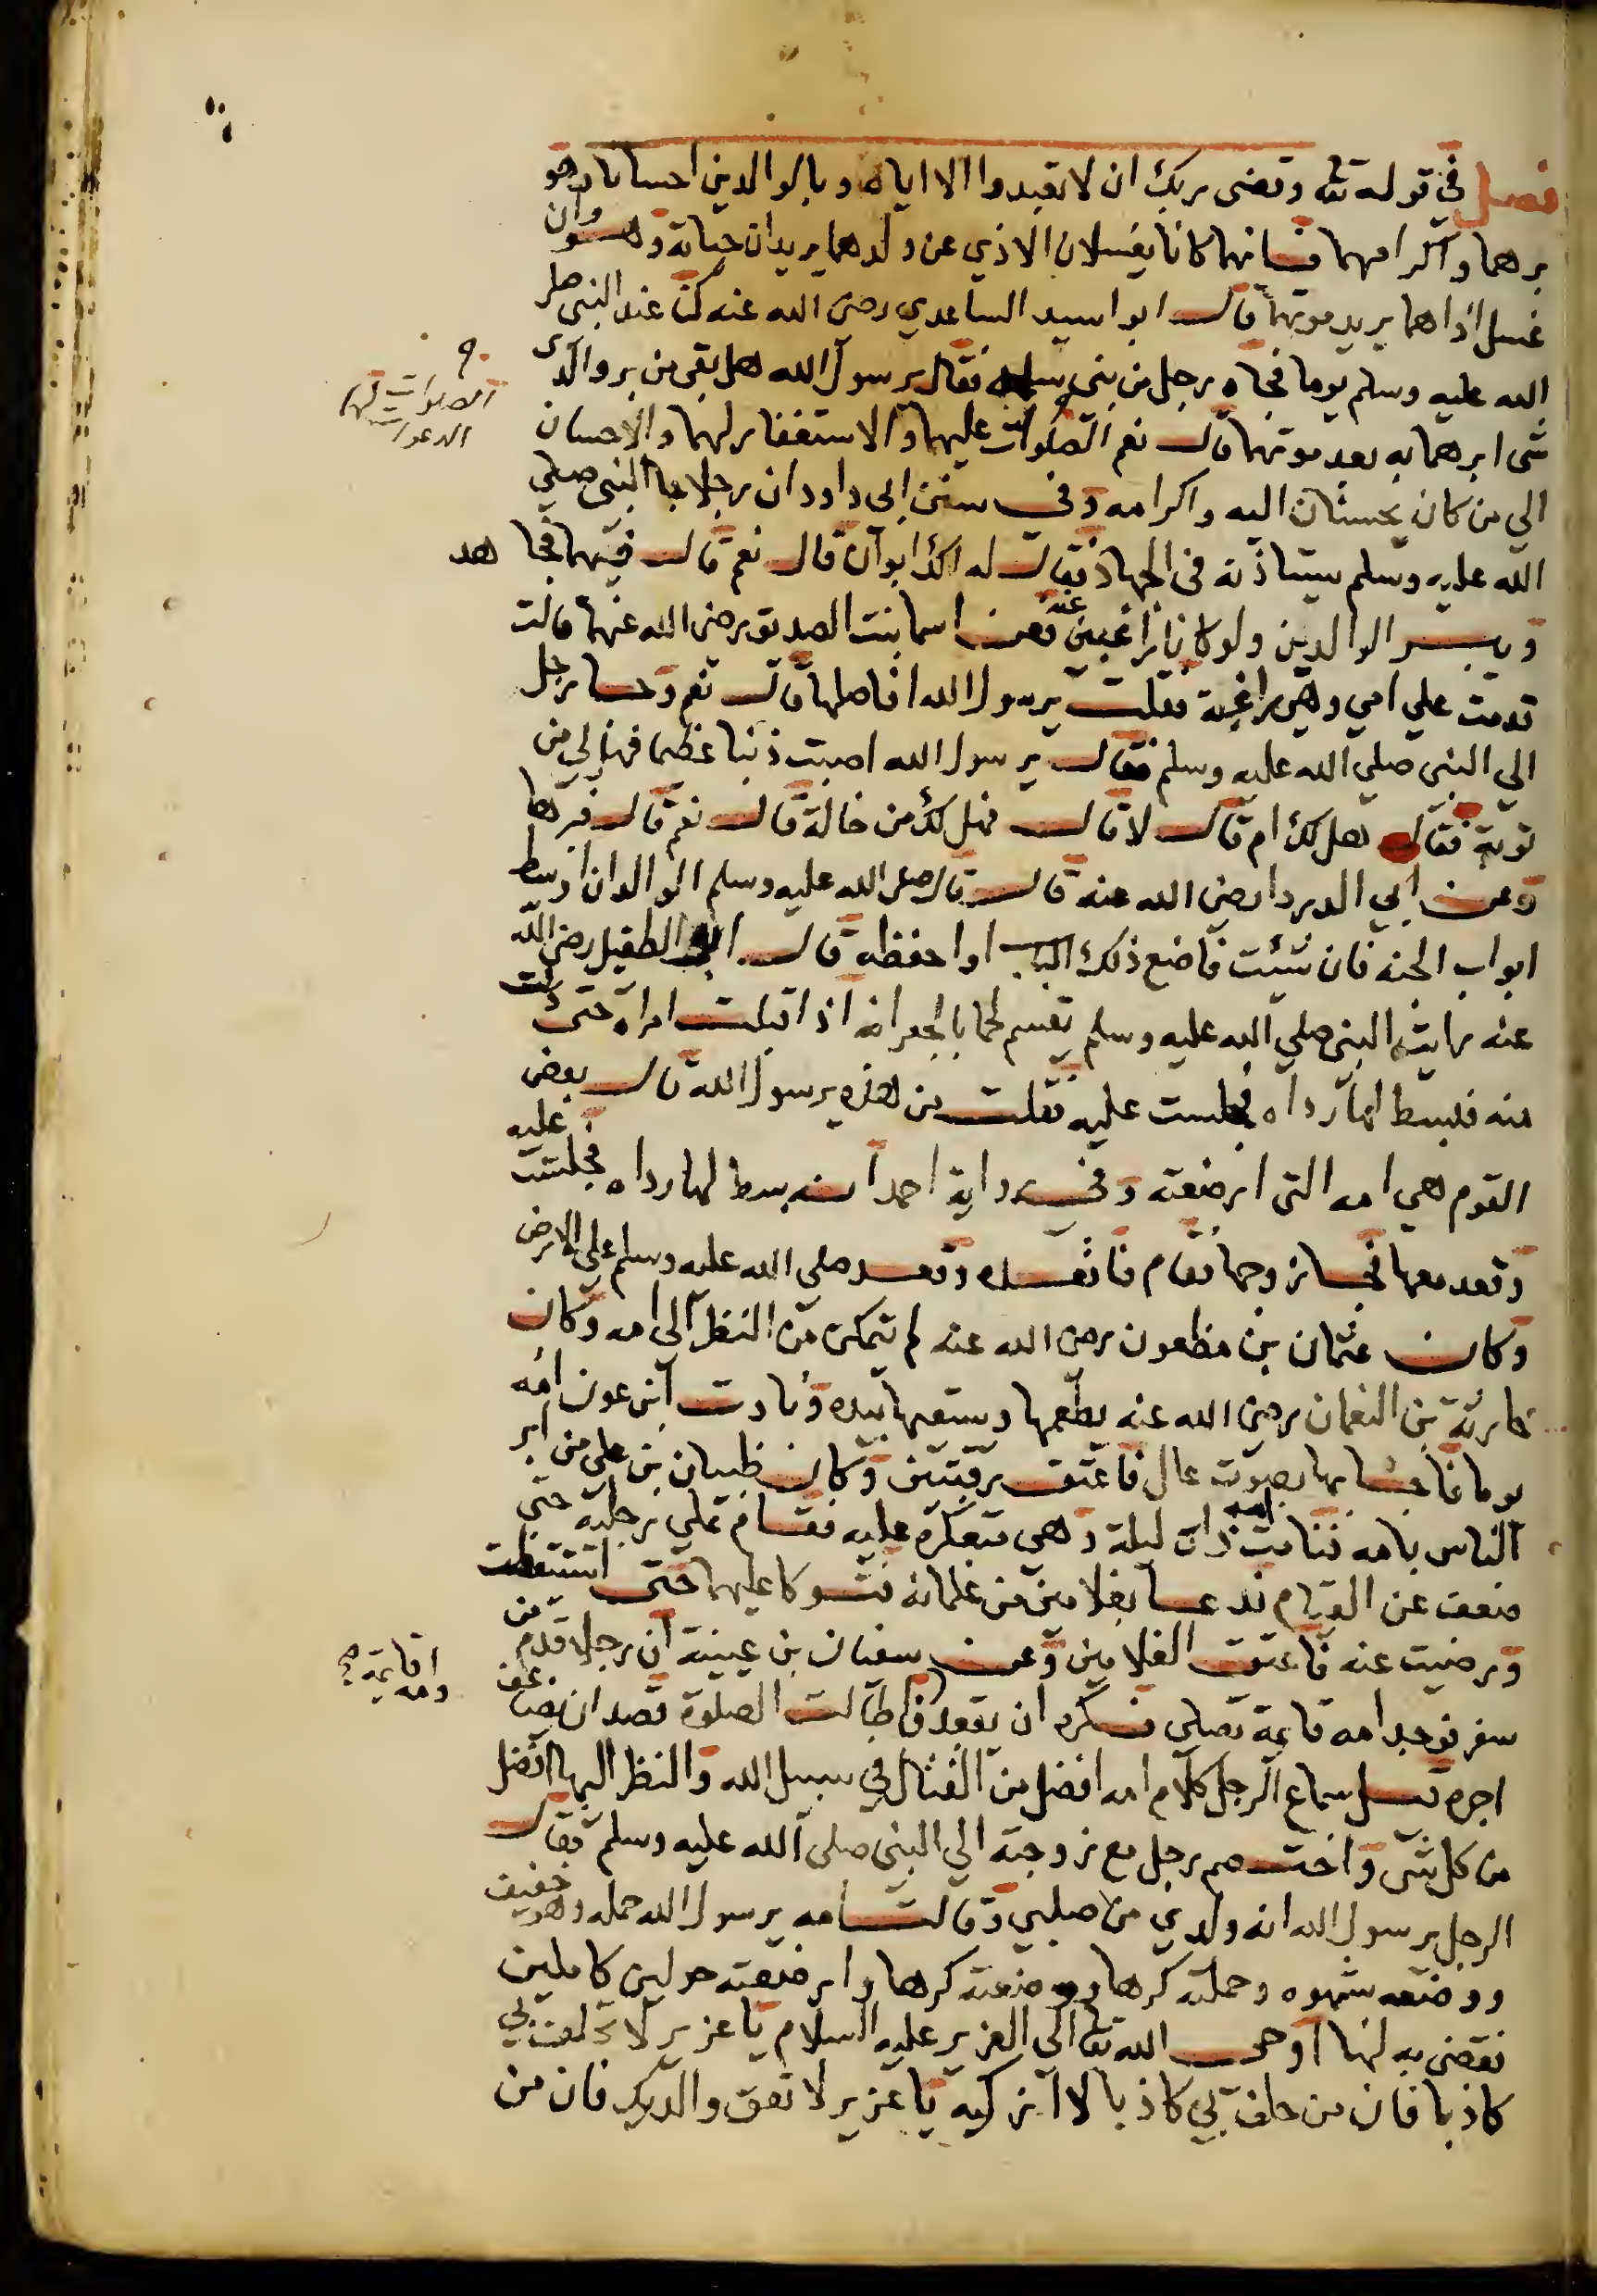 فصل في قوله تعالى وقضى ربك ان لا تعبدوا الا اياه وبالوالدين احسانا وهو
برهما واكرامهما فانهما كانا يغسلان الاذي عن ولدهما يريدان حياته وهو وان
غسل اذاهما يريد موتهما قال ابو اسيد الساعدي رضى الله عنه كنا عند النبى صلى
الله عليه وسلم يوما فجاه رجل من بنى سلمه فقال يرسول الله هل بقى من بر والدى
شى ابرهما به بعد موتهما قال نعم الصلوات عليهما والاستغفار لهما والاحسان
الصلوات لهما
الدعوات
الي من كان يحسنان اليه واكرامه وفي سنن ابى داود ان رجلا جا النبى صلي
الله عليه وسلم يستاذنه فى الجهاد فقال له الك ابوان قال نعم قال ففيهما فجاهد
ويبر الوالدين ولو كانا راغبين عنه فعن اسما بنت الصديق رضى الله عنهما قالت
قدمت علي امي وهي راغبة فقلت يرسول الله افاصلها قال نعم وجا رجل
الي النبى صلي الله عليه وسلم فقال يرسول الله اصبت ذنبا عظيما فهل لي من
توبة فقال هل لك ام قال لا قال فهل لك من خالة قال نعم قال فبرها
وعن ابي الدردا رضى الله عنه قال قال صلى الله عليه وسلم الوالدان اوسط
ابواب الجنه فان شئت فاضع ذلك الباب او احفظه قال ابو الطفيل رضى الله
عنه رايت النبى صلي الله عليه وسلم يقسم لحما بالجعرانه اذ اقبلت امراه حتى دنت
منه فبسط لها رداه فجلست عليه فقلت من هذه يرسول الله قال بعض
القوم هى امه التى ارضعته وفي رواية احمد انه بسط لها رداه فجلست عليه
وقعد معها فجا زوجها فقام فاقعده وقعد صلى الله عليه وسلم على الارض
وكان عثمان بن مظعون رضى الله عنه لم يتمكن من النظر الى امه وكان
حارثة بن النعمان رضى الله عنه يطعمها ويسقيها بيده ونادت ابن عون امه
يوما فاجابها بصوت عال فاعتق رقبتين وكان ظبيان بن على من ابر
الناس بامه فنامت امه ذات ليلة وهى متعكره عليه فقام على رجليه حتى
ضعف عن القيام فدعا بغلامين من غلمانه فتوكا عليهما حتى استيقظت
ورضيت عنه فاعتق الغلامين وعن سفيان بن عيينة ان رجلا قدم من
سفر فوجد امه قايمة تصلى فكره ان يقعد وامه قايمة فاطالت الصلوة قصد ان يضاعف
اجره قيل سماع الرجل كلام امه افضل من القتال في سبيل الله والنظر اليها افضل
من كل شى واختصم رجل مع زوجته الي النبى صلى الله عليه وسلم فقال
الرجل يرسول الله انه ولدي من صلبي وقالت امه يرسول الله حمله وهو خفيف
ووضعه شهوه وحملته كرها ووضعته كرها وارضعته حولين كاملين
فقضى به لها اوحى الله تعالى الى العزير عليه السلام يا عزير لا تحلف بي
كاذبا فان من حلف بي كاذبا لا ازكيه يا عزير لا تعق والديك فان من